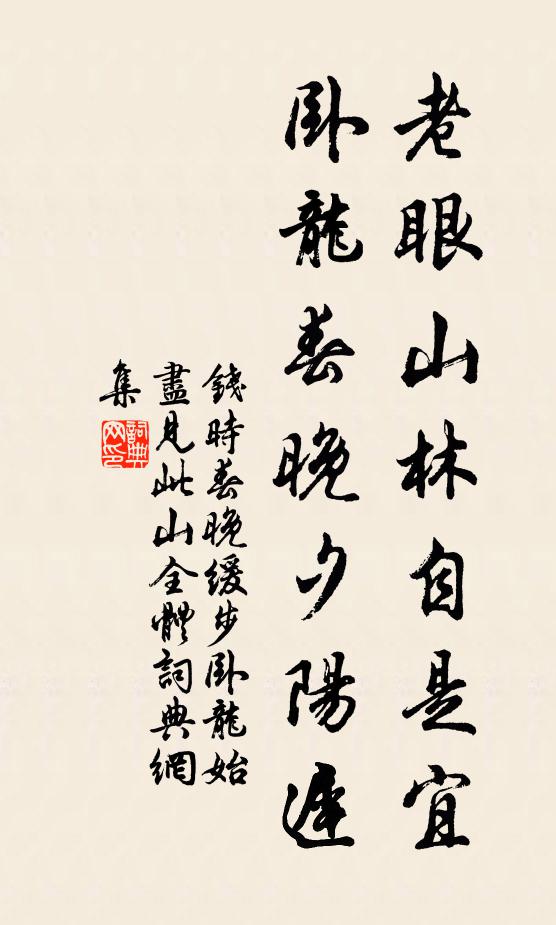 老眼山林自是宜
卧龍春晚夕陽遲
錢時春晚緩步卧龍始
盡見此山全體詞典網
集
詞典
网印